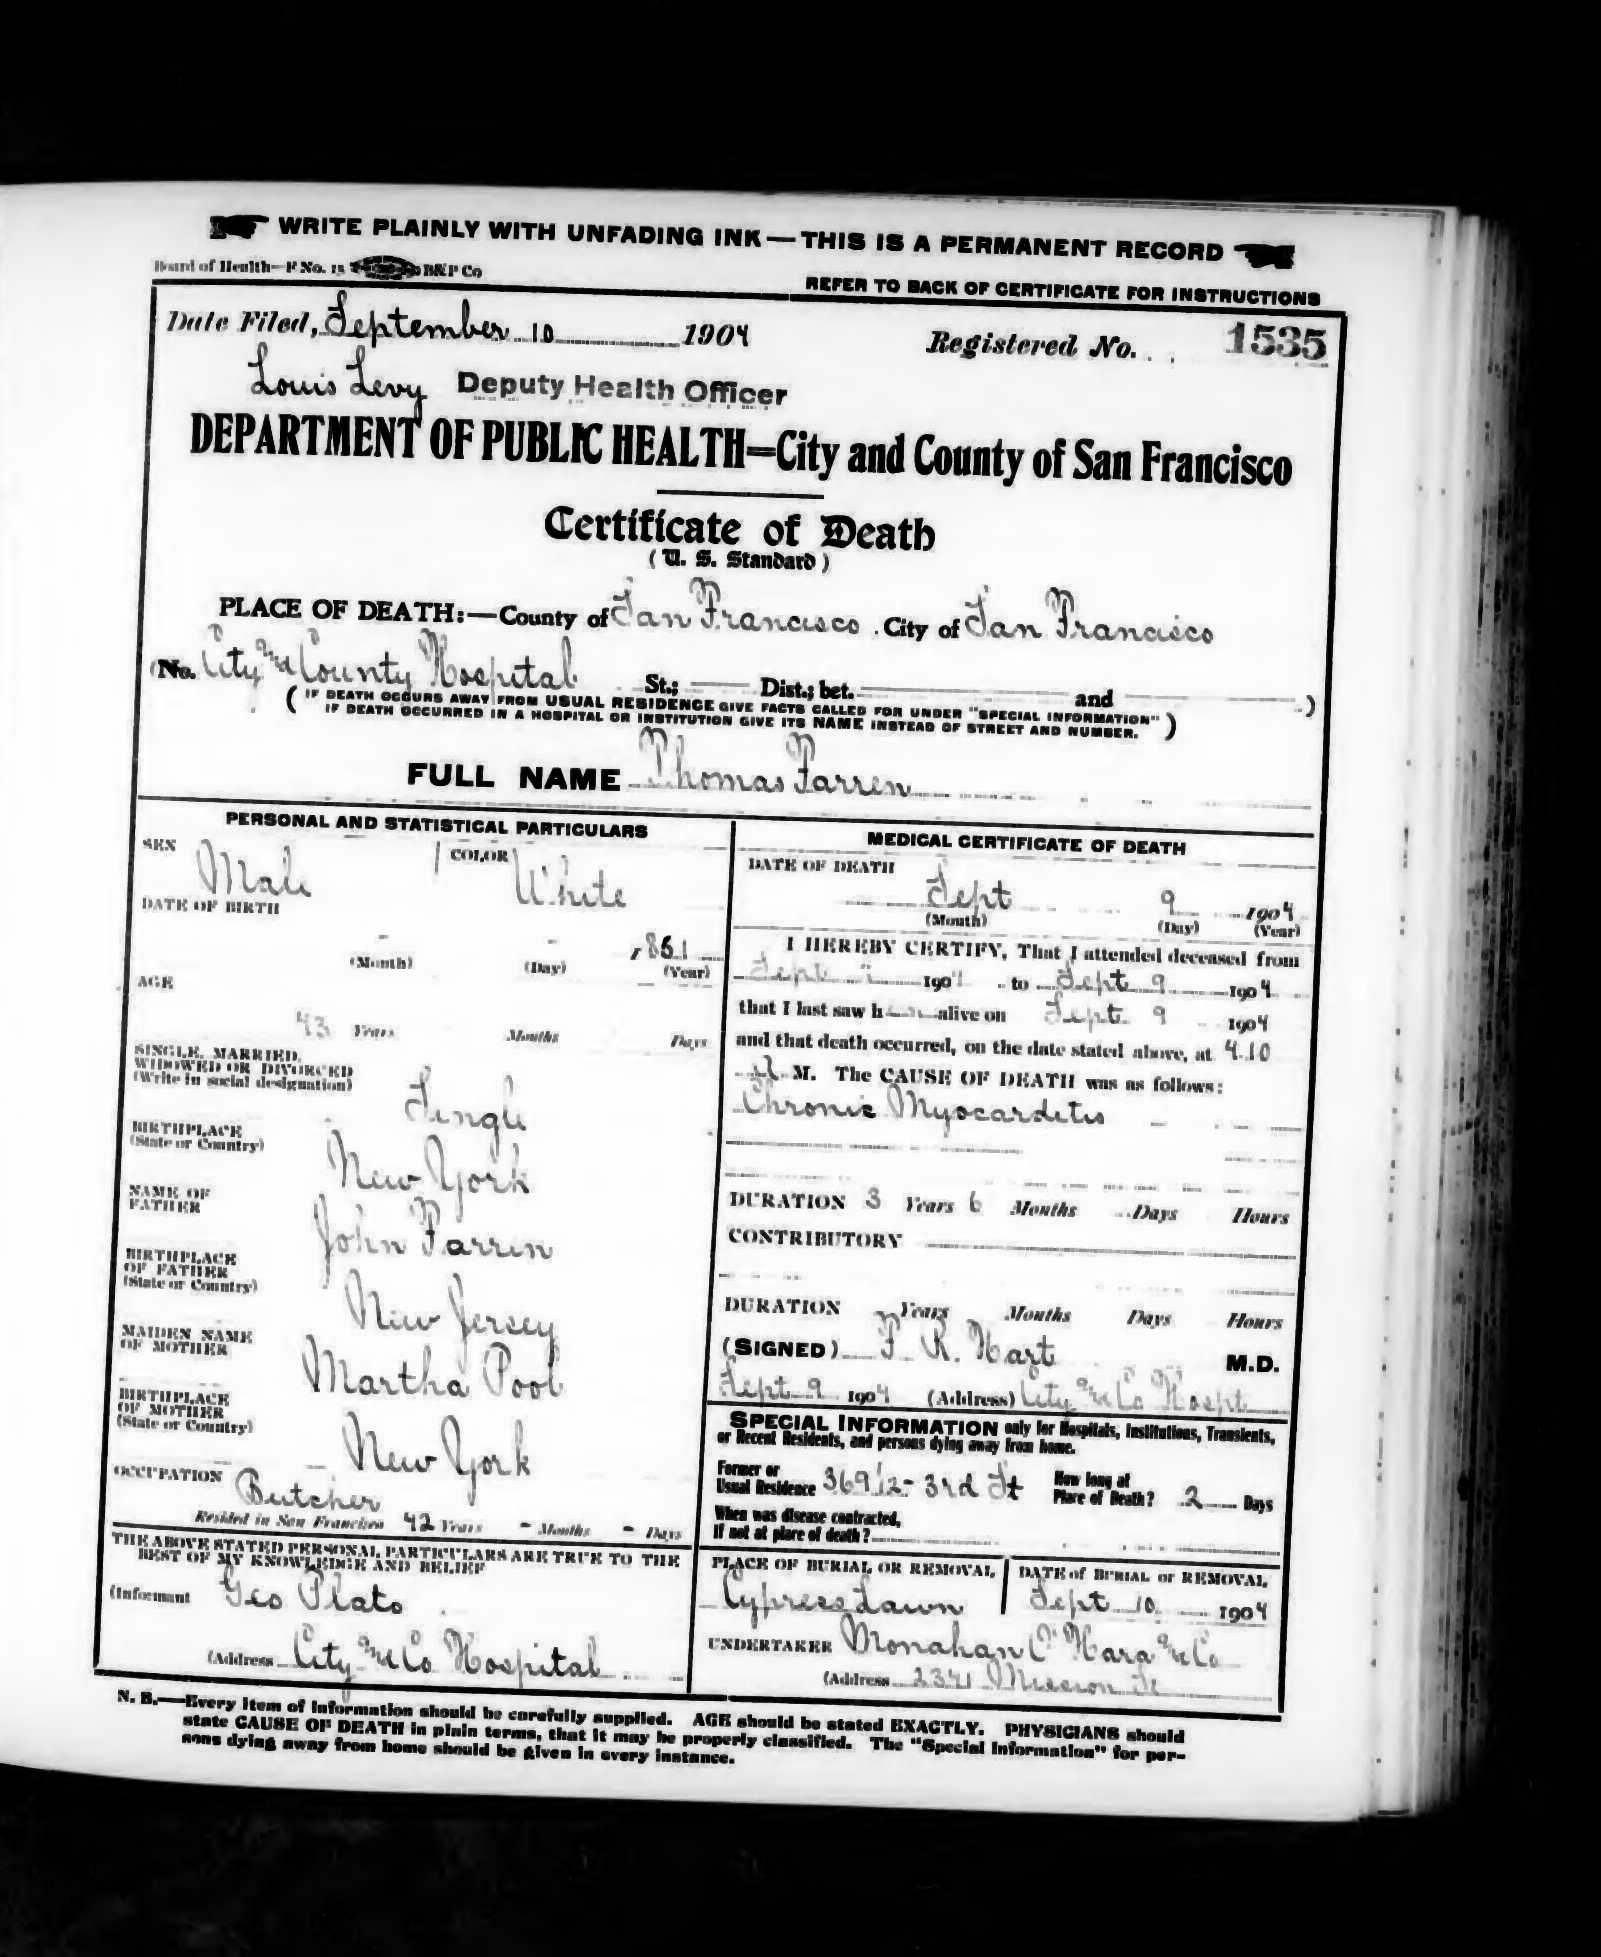 WRITE PLAINLY WITH UNFADING INK—THIS IS A PERMANENT RECORD
Board of Health—F No. 15 B&P Co
REFER TO BACK OF CERTIFICATE FOR INSTRUCTIONS
Date Filed, September 10 1904 Registered No. 1535
Louis Levy Deputy Health Officer
DEPARTMENT OF PUBLIC HEALTH=City and County of San Francisco
Certificate of Death
(U. S. Standard)
PLACE OF DEATH:—County of San Francisco . City of San Francisco
(No. City and County Hospital St.; Dist.; bet. and )
(IF DEATH OCCURS AWAY FROM USUAL RESIDENCE GIVE FACTS CALLED FOR UNDER "SPECIAL INFORMATION"
IF DEATH OCCURRED IN A HOSPITAL OR INSTITUTION GIVE ITS NAME INSTEAD OF STREET AND NUMBER.)
FULL NAME Thomas Farren
PERSONAL AND STATISTICAL PARTICULARS
SEX Male COLOR White
DATE OF BIRTH
- - 1861
(Month) (Day) (Year)
AGE
43 Years Months Days
SINGLE, MARRIED,
WIDOWED OR DIVORCED
(Write in social designation)
Single
BIRTHPLACE
(State or Country)
New York
NAME OF
FATHER
John Farren
BIRTHPLACE
OF FATHER
(State or Country)
New Jersey
MAIDEN NAME
OF MOTHER
Martha Pool
BIRTHPLACE
OF MOTHER
(State or Country)
New York
OCCUPATION Butcher
Resided in San Francisco 42 Years - Months - Days
THE ABOVE STATED PERSONAL PARTICULARS ARE TRUE TO THE
BEST OF MY KNOWLEDGE AND BELIEF
(Informant Geo Plato
(Address City and Co Hospital
MEDICAL CERTIFICATE OF DEATH
DATE OF DEATH
Sept 9 1904
(Month) (Day) (Year)
I HEREBY CERTIFY, That I attended deceased from
Sept 1904 to Sept 9 1904
that I last saw h alive on Sept 9 1904
and that death occurred, on the date stated above, at 4.10
M. The CAUSE OF DEATH was as follows:
Chronic Myocarditis
DURATION 3 Years 6 Months Days Hours
CONTRIBUTORY
DURATION Years Months Days Hours
(SIGNED) F. R. Hart M.D.
Sept 9 1904 (Address) City and Co Hospt
SPECIAL INFORMATION only for Hospitals, Institutions, Transients,
or Recent Residents, and persons dying away from home.
Former or
Usual Residence 369 1/2 - 3rd St
How long at
Place of Death? 2 Days
When was disease contracted,
If not at place of death?
PLACE OF BURIAL OR REMOVAL
Cypress Lawn
DATE of BURIAL or REMOVAL
Sept 10 1904
UNDERTAKER Monahan O'Hara and Co
(Address 2341 Mission St
N. B.—Every item of information should be carefully supplied. AGE should be stated EXACTLY. PHYSICIANS should
state CAUSE OF DEATH in plain terms, that it may be properly classified. The "Special Information" for per-
sons dying away from home should be given in every instance.